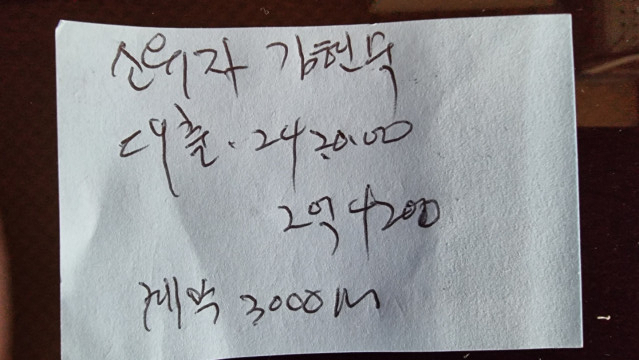 신위자 김현무
대출. 242000.00
2억4200
계약 3000M